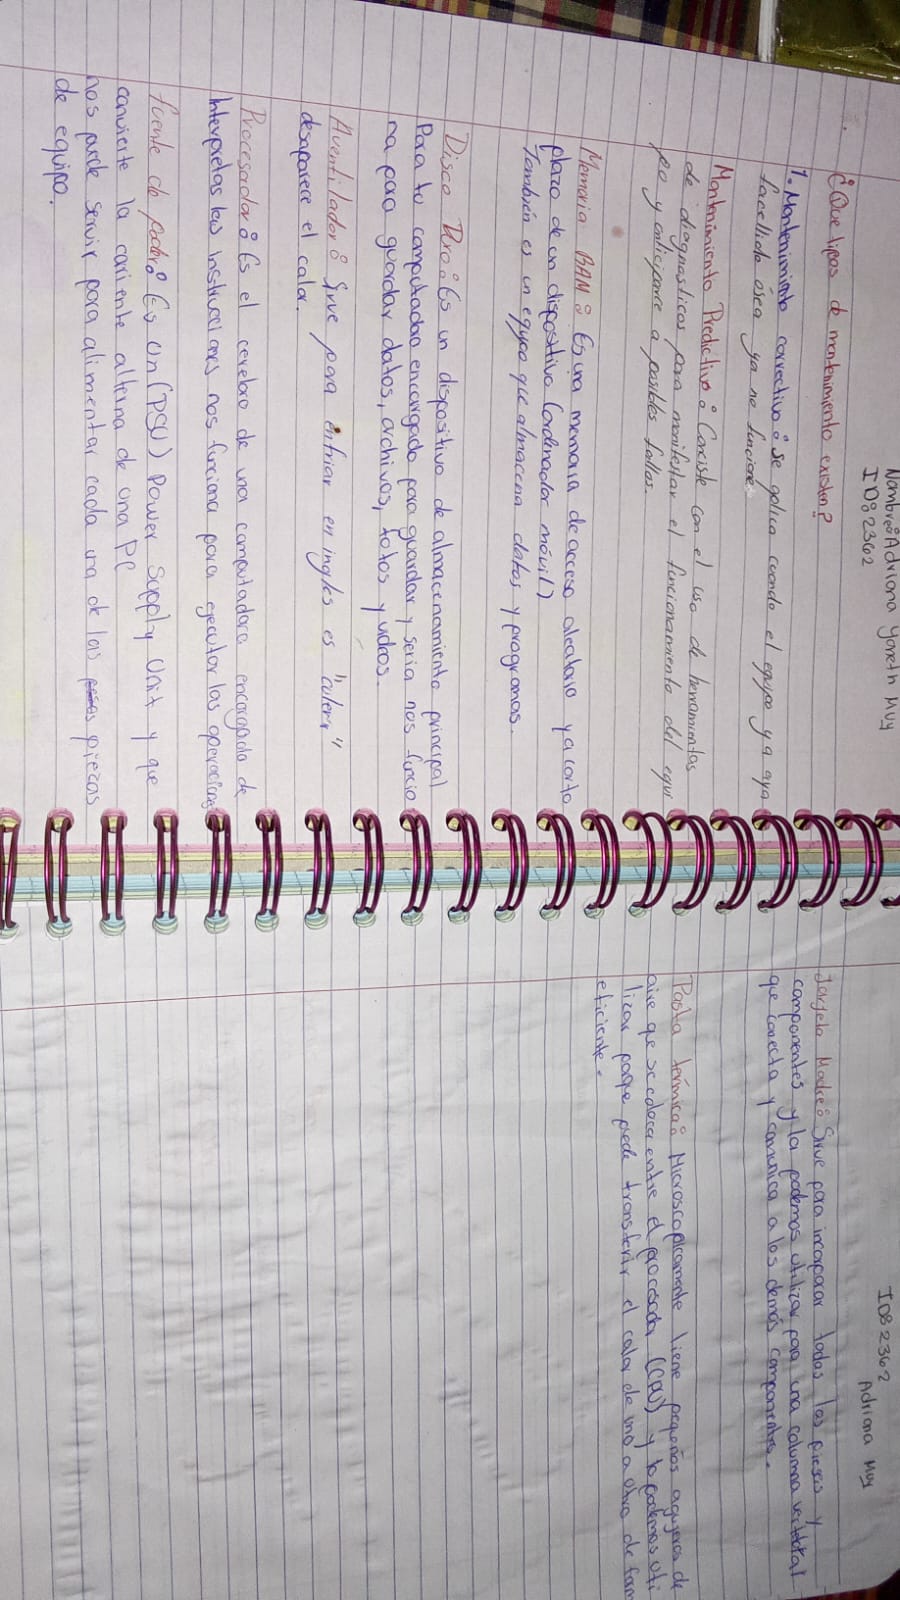 Nombre: Adriana Yaneth Muy
ID: 2362
¿Que tipos d mantenimiento existen?
1. Mantenimiento correctivo: Se aplica cuando el equipo ya aya
facellido ósea ya no funcione.
Mantenimiento Predictivo: Conciste con el uso de herramientas
de diagnosticos para monifestar el funcionamiento del equi
po y anticiparce a posibles fallas.
Memoria RAM: Es una memoria de acceso aleatorio y a corto
plazo de un dispositivo (ordinador móvil)
También es un equipo que almacena datos y programas.
Disco Duro: Es un dispositivo de almacenamiento principal
Para tu computadora encargado para guardar y seria nos funcio
na para guardar datos, archivos, fotos y videos.
Aventilador: Sirve para enfriar en ingles es "culer"
desaparece el calor.
Procesador: Es el cerebro de una computadora encargado de
Interpretas las instrucciones nos funciona para ejecutar las operaciones
fuente de poder: Es un (PSU) Power Supply Unit y que
convierte la coriente alterna de una PC
nos puede servir para alimentar cada una de las piezas
de equipo.
ID: 2362
Adriana Muy
Tarjeta Madre: Sirve para incorporar todas las piesas y
componentes y la podemos utilizar para una columna vertebral
que conecta y comunica a los demás componentes.
Pasta térmica: Microscopicamente tiene pequeños agujeros de
aire que se coloca entre el procesador (CPU) y lo podemos uti
lizar porque puede transferir el calor de uno a otro de form
eficiente.